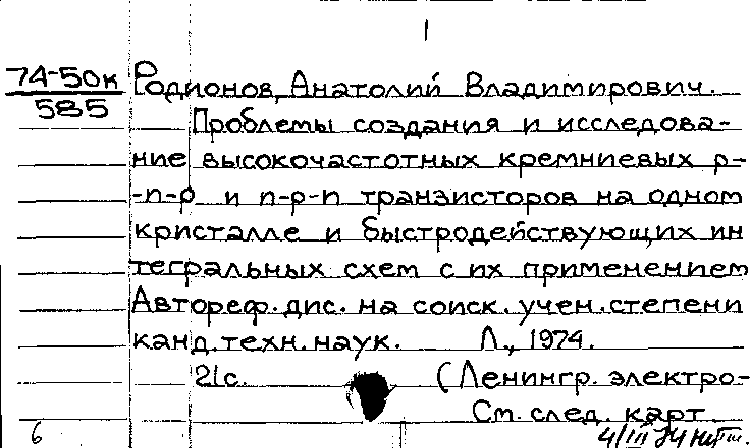 1
74-50к
585
Родионов, Анатолий Владимирович.
Проблемы создания и исследова-
ние высокочастотных кремниевых p-
-n-p и n-p-n транзисторов на одном
кристалле и быстродействующих ин
тегральных схем с их применением
Автореф. дис. на соиск. учен. степени
канд. техн. наук. Л., 1974.
21с. (Ленингр. электро-
См. след. карт.
6 4/III 74